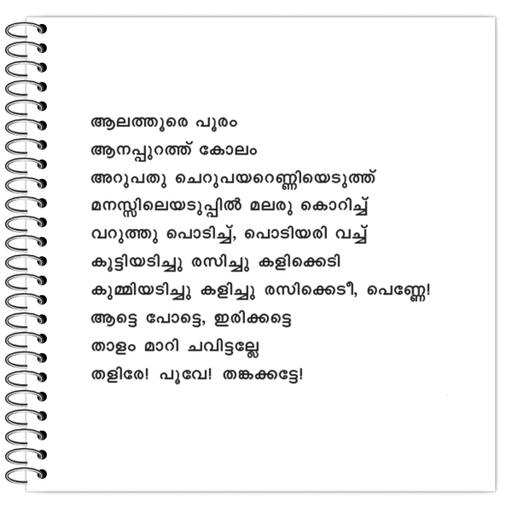 ആലത്തൂരെ പൂരം
ആനപ്പുറത്ത് കോലം
അറുപതു ചെറുപയറെണ്ണിയെടുത്ത്
മനസ്സിലെയടുപ്പിൽ മലരു കൊറിച്ച്
വറുത്തു പൊടിച്ച്, പൊടിയരി വച്ച്
കൂട്ടിയടിച്ചു രസിച്ചു കളിക്കെടി
കുമ്മിയടിച്ചു കളിച്ചു രസിക്കെടീ, പെണ്ണേ!
ആട്ടെ പോട്ടെ, ഇരിക്കട്ടെ
താളം മാറി ചവിട്ടല്ലേ
തളിരേ! പൂവേ! തങ്കക്കട്ടേ!